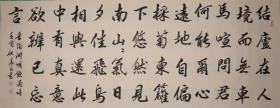 結廬在人
境而無車
馬喧問君
何能爾心
遠地自偏
採菊東籬
下悠然見
南山々氣日
夕佳飛鳥
相與還此
中有真意
欲辨已忘
言
晉陶淵明飲酒詩